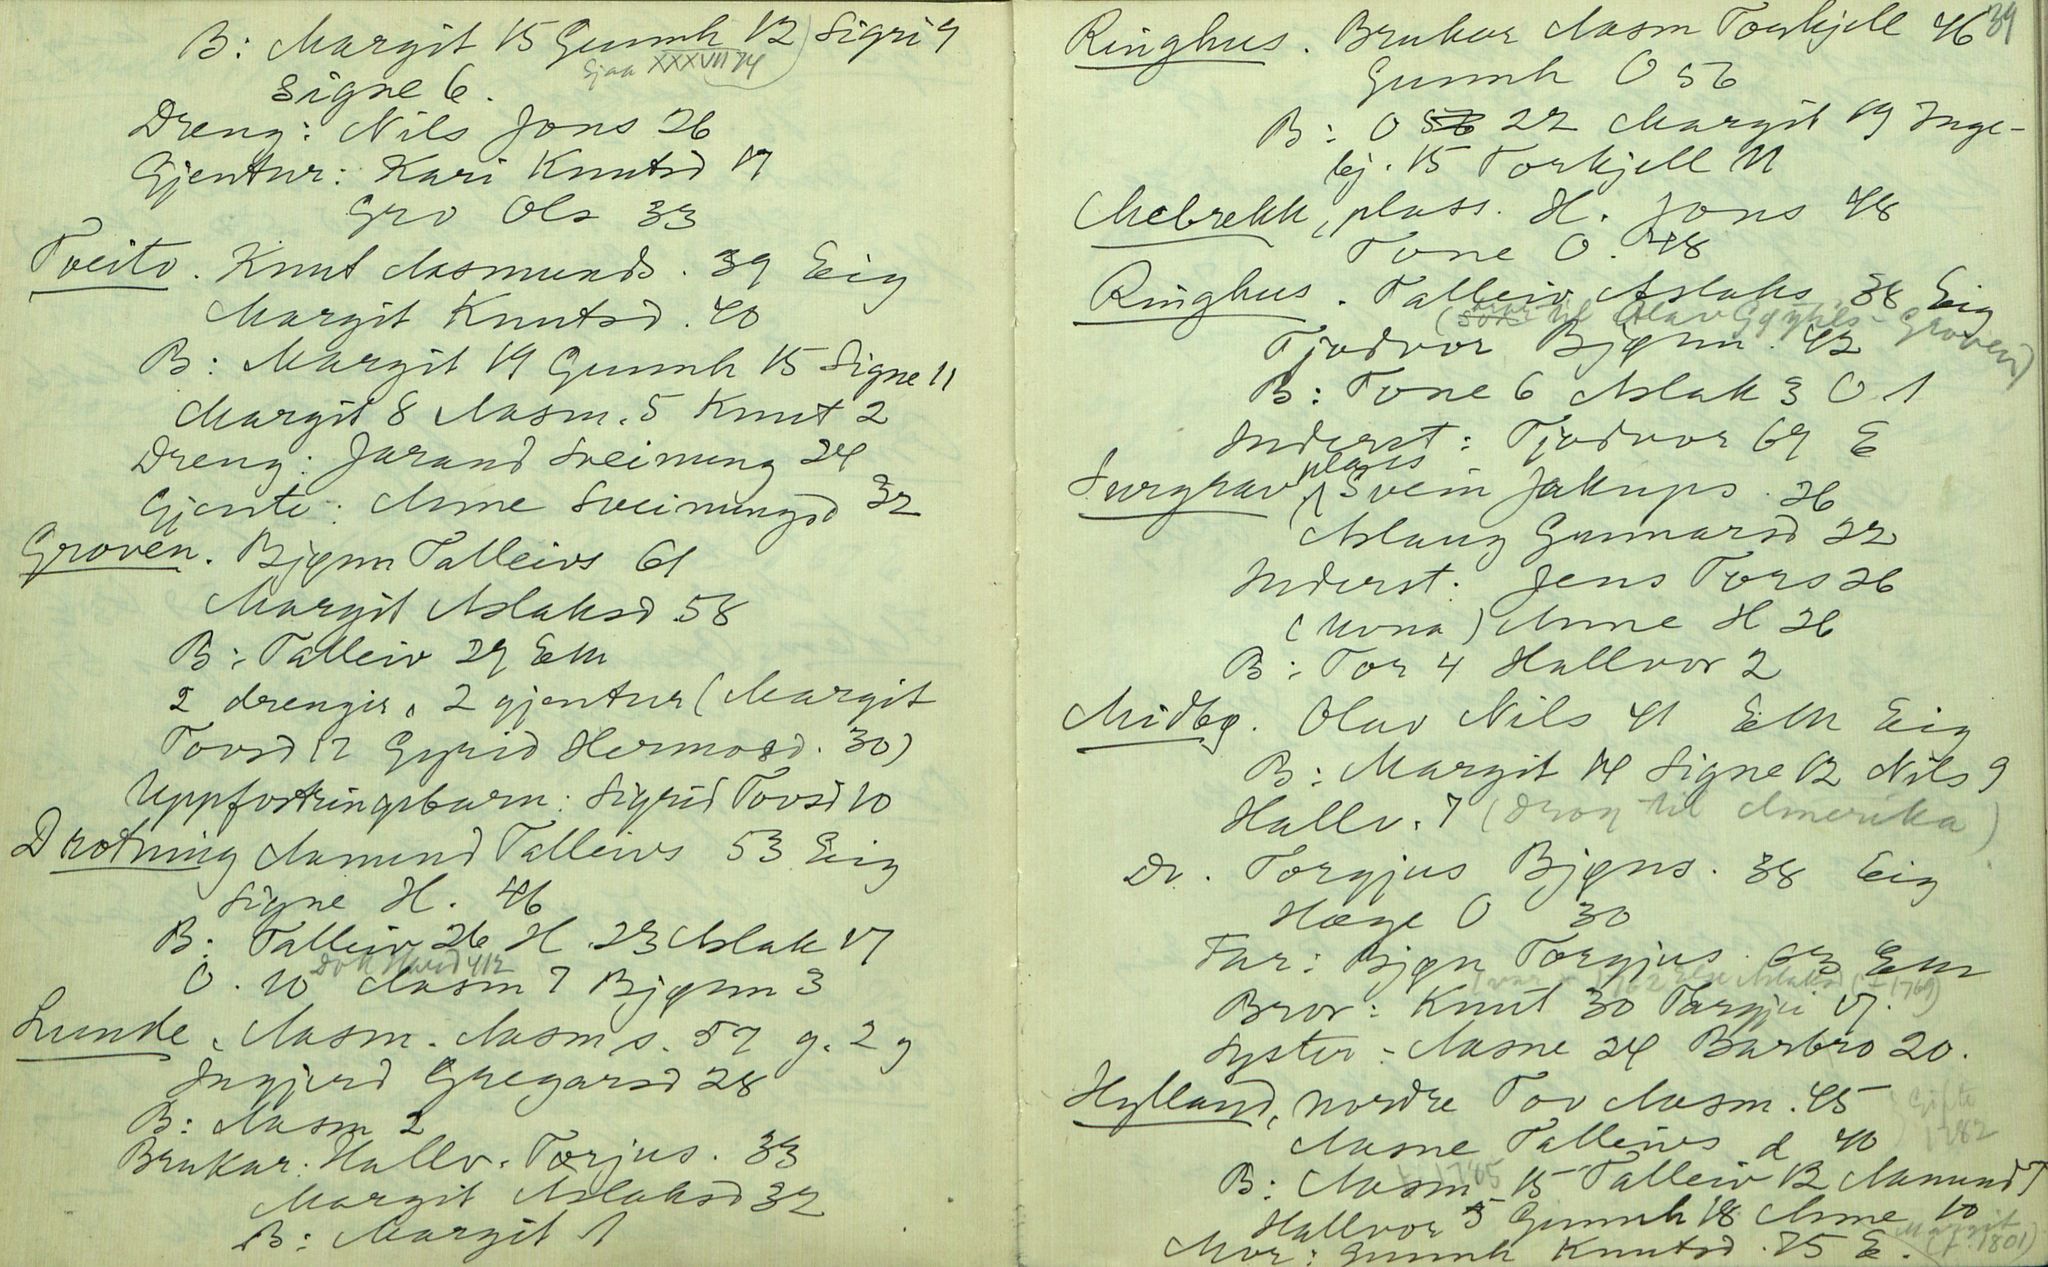 B: Margit 15 Gunnh 12) Sigri 9
Gjaa XXXVII 74
Signe 6.
Dreng: Nils Jons 26
Gjentur: Kari Knutsd 17
Gro Ols 33
Tveito. Knut Aasmunds. 39 Eig
Margit Knutsd. 40
B: Margit 19 Gunnh 15 Signe 11
Margit 8 Aasm. 5 Knut 2
Dreng: Jarand Sveinung 24
Gjente: Anne Sveinungsd 32
Groven. Bjønn Talleivs 61
Margit Aslaksd 58
B: Talleiv 29 Em
2 drengir, 2 gjentur (Margit
Tovsd 12 Gyrid Hermosd. 30)
Uppfostringsbarn: Sigrid Tovsd 10
Drotning Aamund Talleivs 53 Eig
Signe H. 46
B: Talleiv 26 H. 23 Aslak 17
O. 10 Aasm 7 Bjønn 3
Lunde. Aasm. Aasm s. 57 g. 2 g
Ingjerd Gregarsd 28
B: Aasm 2
Brukar: Hallv. Torjus. 33
Margit Aslaksd 32
B: Margit 1
39
Ringhus. Brukar Aasm Torkjell 46
Gunnh O 56
B: O 56 22 Margit 19 Inge-
bj. 15 Torkjell 11
Mebrekk, plass. H. Jons 48
Tone O. 48
Ringhus. Talleiv Aslaks 38 Eig
til Olav Groven)
Tjodvor Bjønn. 42
B: Tone 6 Aslak 3 O 1
Inderst: Tjodvor 69 E
Surgrav, plass Svein Jakups. 26
Aslaug Gunnarsd 22
Inderst: Jens Tors 26
(kona) Anne H 26
B: Tor 4 Hallvor 2
Midbø. Olav Nils 41 Em Eig
B: Margit 14 Signe 12 Nils 9
Hallv. 7 (drog til Amerika)
Dr. Torgjus Bjøns. 38 Eig
Hæge O 30
Far: Bjøn Torgjus. 63 Em
Aslaksd († 1769)
Bror: Knut 30 Targjei 17.
Syster: Aasne 24 Barbro 20.
Hylland, nordre Tov Aasm. 45
Gifte 1782
Aasne Talleivs d 40
B: Aasm 15 Talleiv 12 Aamund 7
Hallvor 5 Gunnh 18 Anne 10
Margit († 1801)
Mor: Gunnh Knutsd. 75 E.